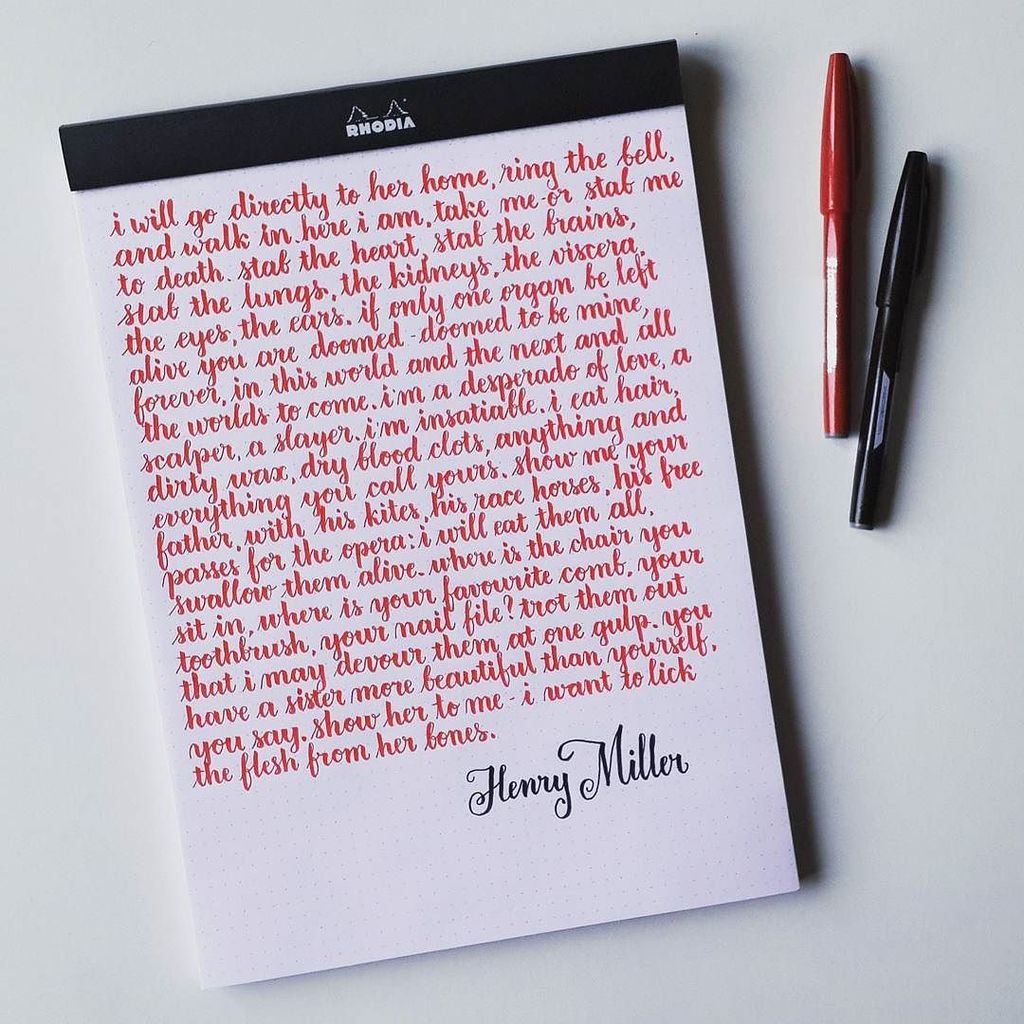 RHODIA
i will go directly to her home, ring the bell,
and walk in. here i am, take me - or stab me
to death. stab the heart, stab the brains,
stab the lungs, the kidneys, the viscera,
the eyes, the ears. if only one organ be left
alive you are doomed - doomed to be mine,
forever, in this world and the next and all
the worlds to come. i'm a desperado of love, a
scalper, a slayer. i'm insatiable. i eat hair,
dirty wax, dry blood clots, anything and
everything you call yours. show me your
father, with his kites, his race horses, his free
passes for the opera: i will eat them all,
swallow them alive. where is the chair you
sit in, where is your favourite comb, your
toothbrush, your nail file? trot them out
that i may devour them at one gulp. you
have a sister more beautiful than yourself,
you say. show her to me - i want to lick
the flesh from her bones.
Henry Miller